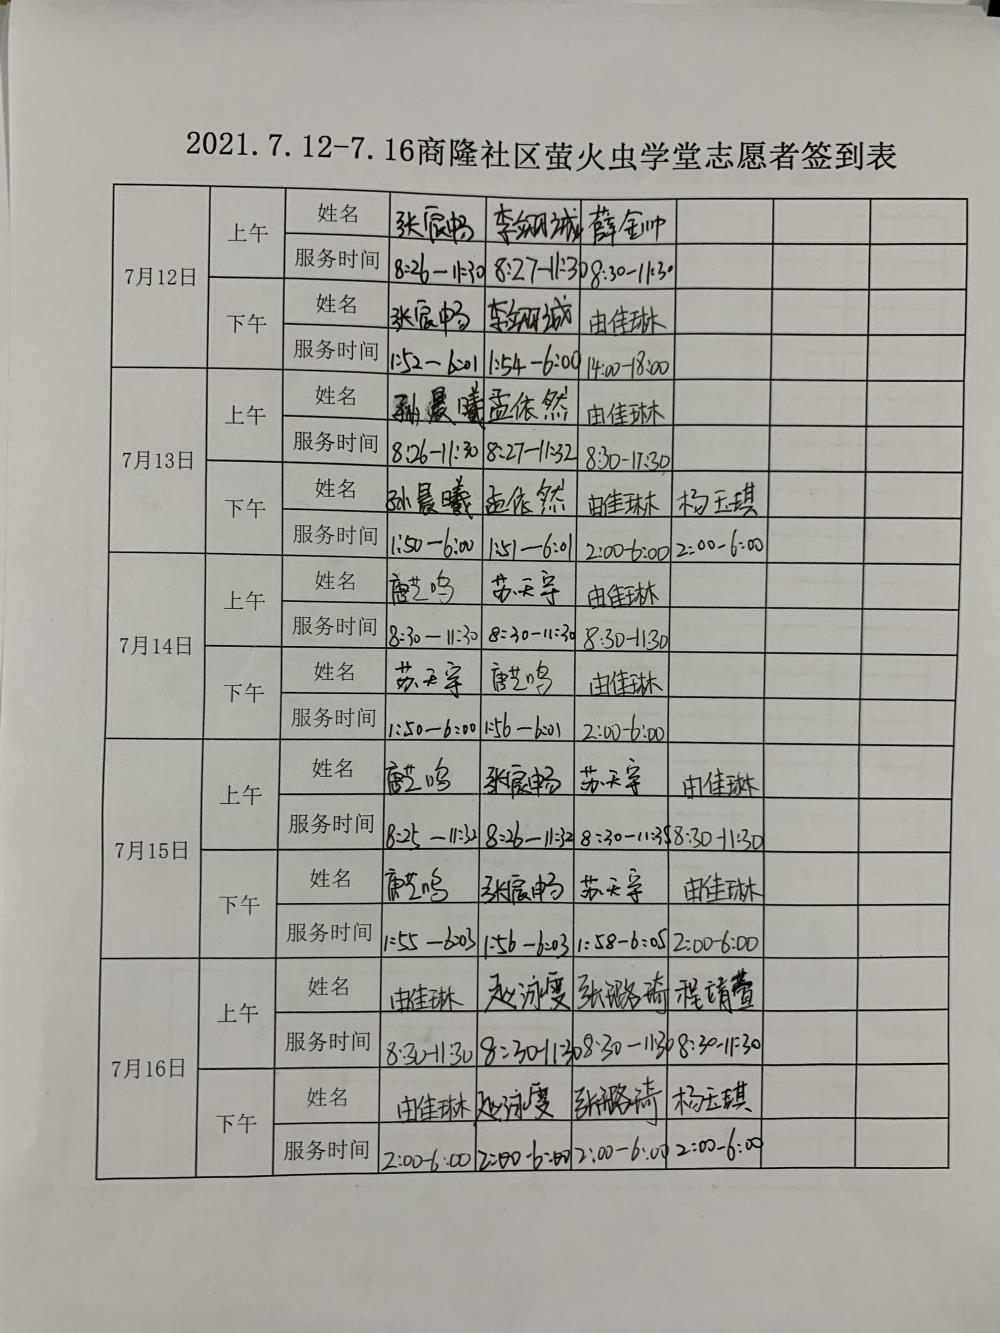 2021.7.12-7.16商隆社区萤火虫学堂志愿者签到表
7月12日 上午 姓名 张宸畅 李翊诚 薛金帅
服务时间 8:26-11:30 8:27-11:30 8:30-11:30
下午 姓名 张宸畅 李翊诚 由佳琳
服务时间 1:52-6:01 1:54-6:00 14:00-18:00
7月13日 上午 姓名 孙晨曦 孟依然 由佳琳
服务时间 8:26-11:30 8:27-11:32 8:30-11:30
下午 姓名 孙晨曦 孟依然 由佳琳 杨玉琪
服务时间 1:50-6:00 1:51-6:01 2:00-6:00 2:00-6:00
7月14日 上午 姓名 唐艺鸣 苏天宇 由佳琳
服务时间 8:30-11:30 8:30-11:30 8:30-11:30
下午 姓名 苏天宇 唐艺鸣 由佳琳
服务时间 1:50-6:00 1:56-6:01 2:00-6:00
7月15日 上午 姓名 唐艺鸣 张宸畅 苏天宇 由佳琳
服务时间 8:25-11:32 8:26-11:32 8:30-11:35 8:30-11:30
下午 姓名 唐艺鸣 张宸畅 苏天宇 由佳琳
服务时间 1:55-6:03 1:56-6:03 1:58-6:05 2:00-6:00
7月16日 上午 姓名 由佳琳 赵泳雯 张璐琦 程靖萱
服务时间 8:30-11:30 8:30-11:30 8:30-11:30 8:30-11:30
下午 姓名 由佳琳 赵泳雯 张璐琦 杨玉琪
服务时间 2:00-6:00 2:00-6:00 2:00-6:00 2:00-6:00